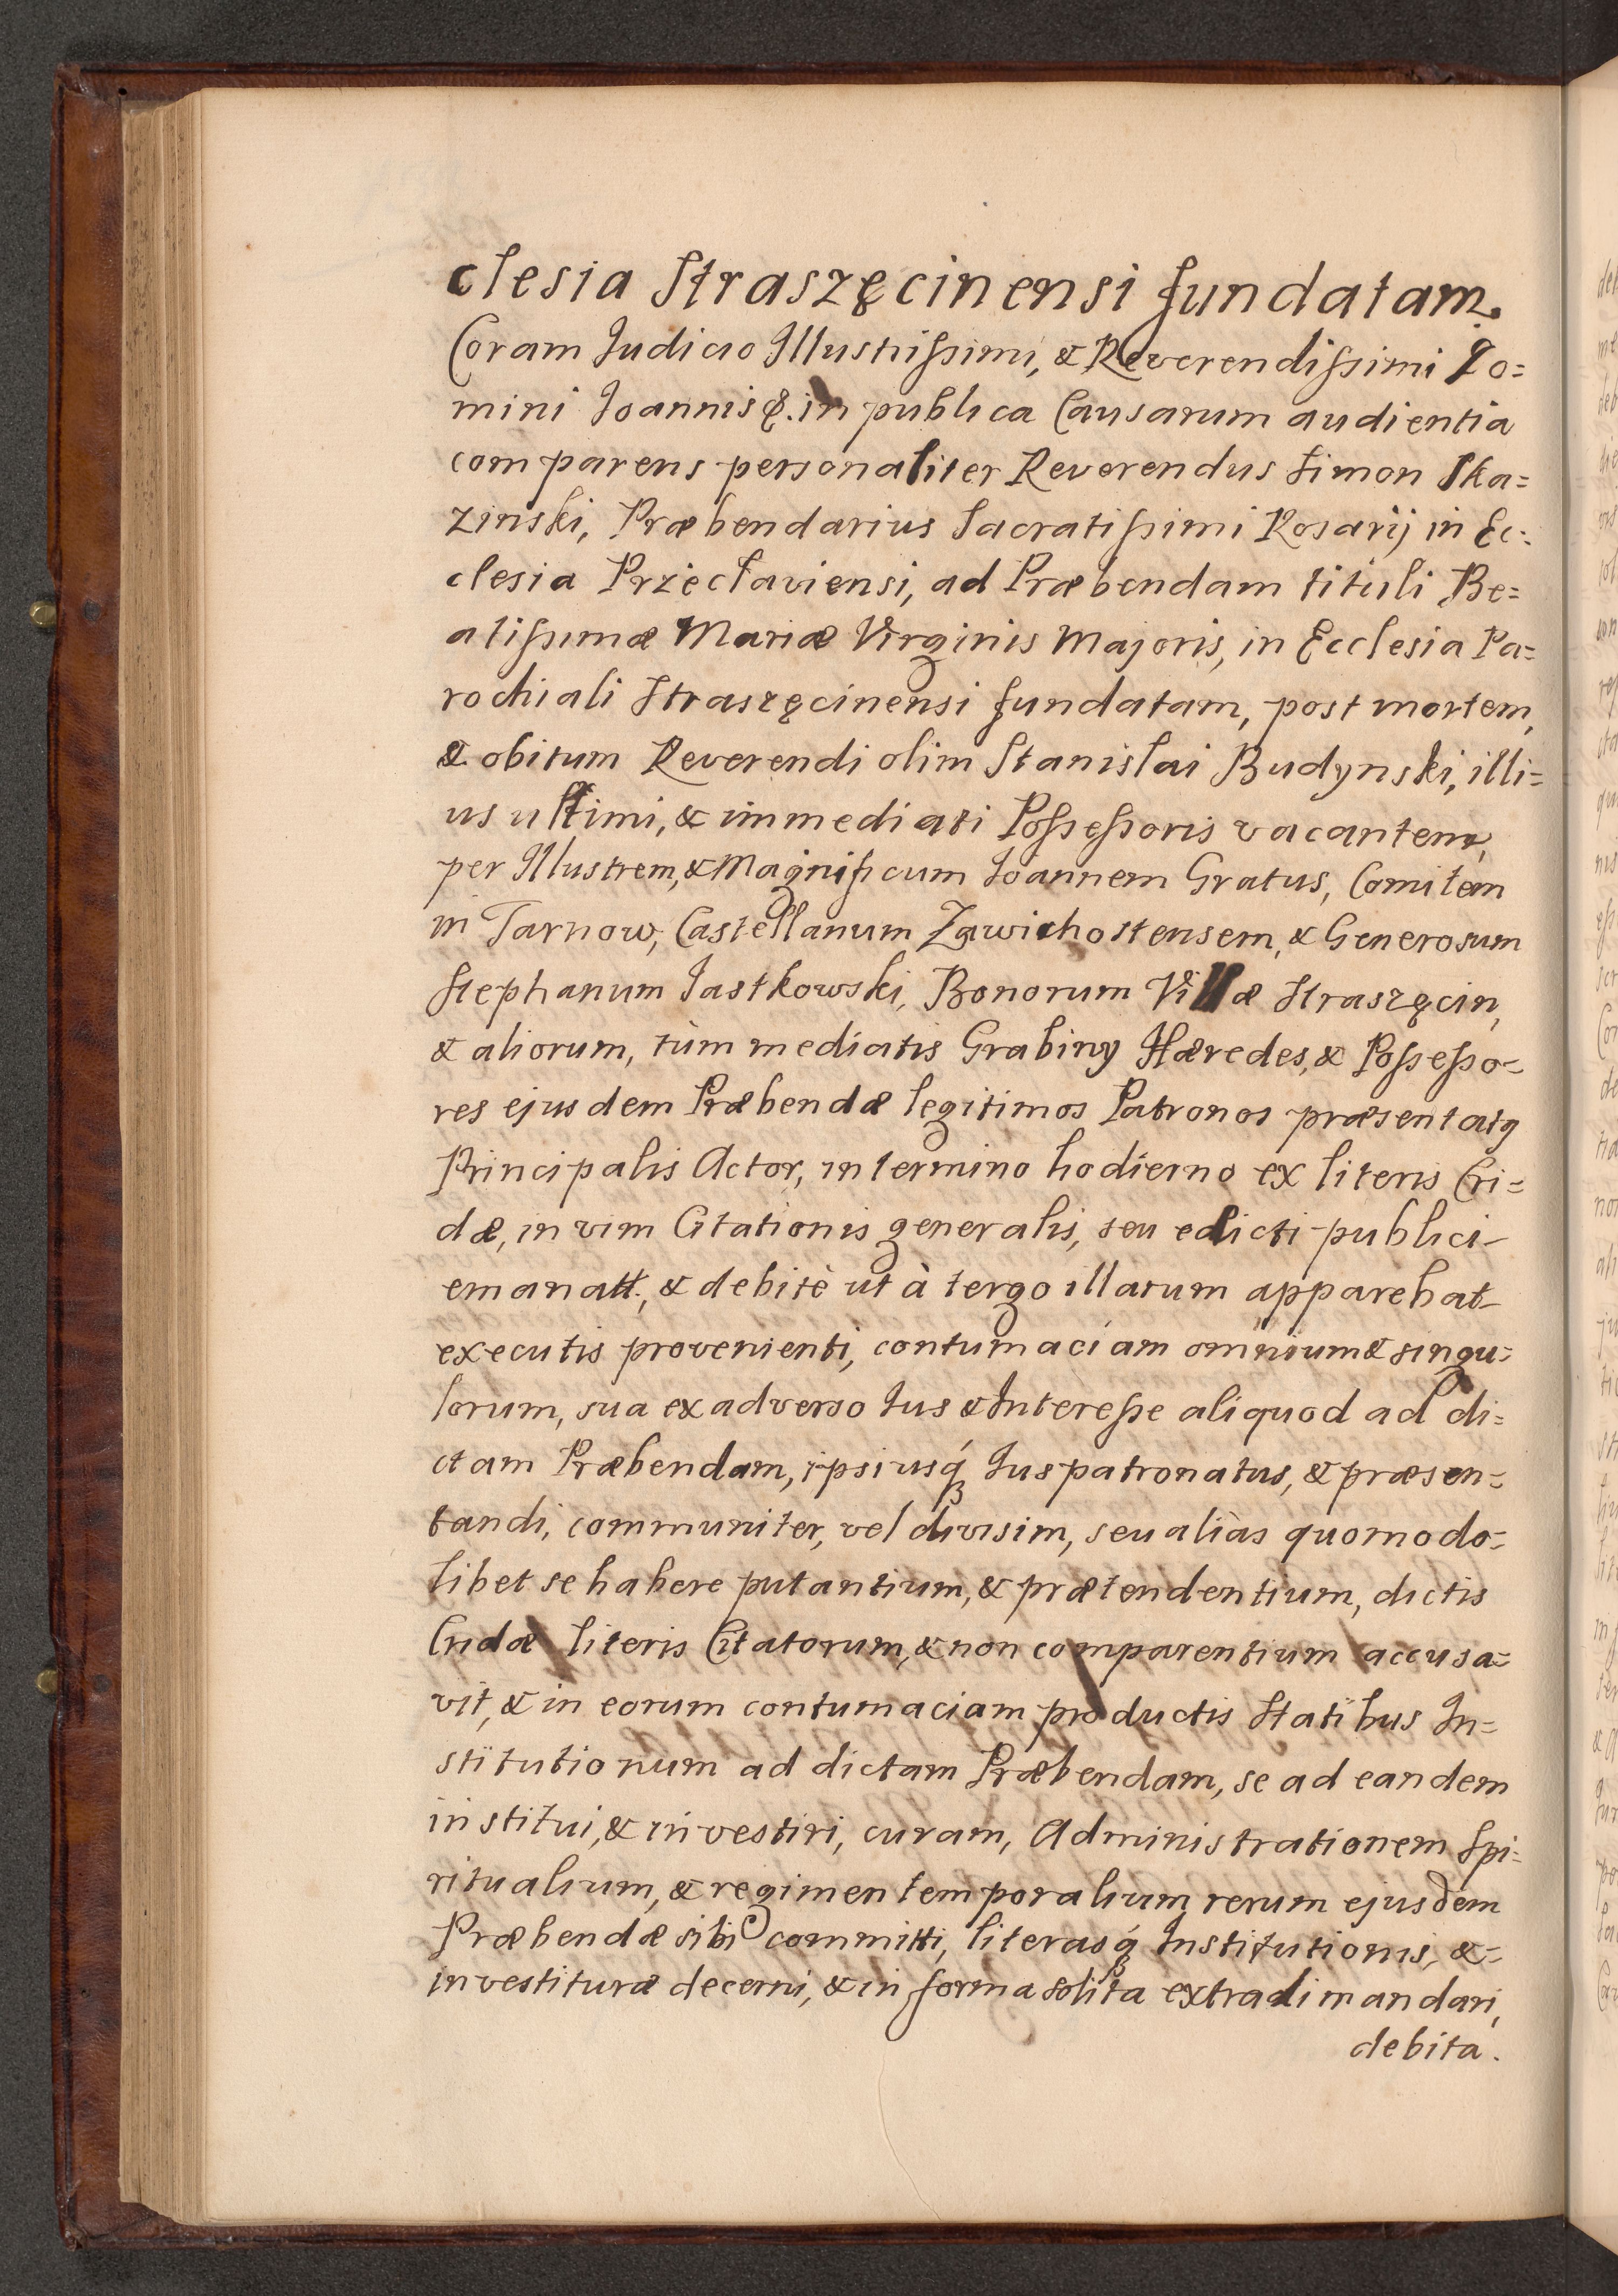 clesia Straszęcinensi fundatam.
Coram Judicio Illustrissimi, & Reverendissimi Do=
mini Joannis &. in publica Causarum audientia
comparens personaliter Reverendus Simon Ska=
zinski, Præbendarius Sacratissimi Rosarij in Ec=
clesia Przecłaviensi, ad Præbendam tituli Be=
atissimæ Mariæ Virginis Majoris, in Ecclesia Pa=
rochiali Straszęcinensi fundatam, post mortem,
& obitum Reverendi olim Stanislai Budynski, illi=
us ultimi, & immediati Possessoris vacantem,
per Illustrem, & Magnificum Joannem Gratus, Comitem
in Tarnow, Castellanum Zawichostensem, & Generosum
Stephanum Jastkowski, Bonorum Villæ Straszęcin,
& aliorum, tùm mediatis Grabiny Hæredes, & Possesso=
res ejusdem Præbendæ legitimos Patronos præsentatq
Principalis Actor, in termino hodierno ex literis Cri=
dæ, in vim Citationis generalis, seu edicti publici
emanatt., & debitè ut à tergo illarum apparebat
executis provenienti, contumaciam omnium & singu=
lorum, sua ex adverso Jus & Interesse aliquod ad di=
ctam Præbendam, ipsiusq́ Juspatronatus, & præsen=
tandi, communiter, vel divisim, seu aliàs quomodo=
libet se habere putantium, & prætendentium, dictis
Cridæ literis Citatorum, & non comparentium accusa=
vit, & in eorum contumaciam productis Statibus In=
stitutionum ad dictam Præbendam, se ad eandem
institui, & investiri, curam, Administrationem Spi=
ritualium, & regimen temporalium rerum ejusdem
Præbendæ sibi committi, literasq́ Institutionis, &=
investituræ decerni, & in forma solita extradi mandari,
debita.